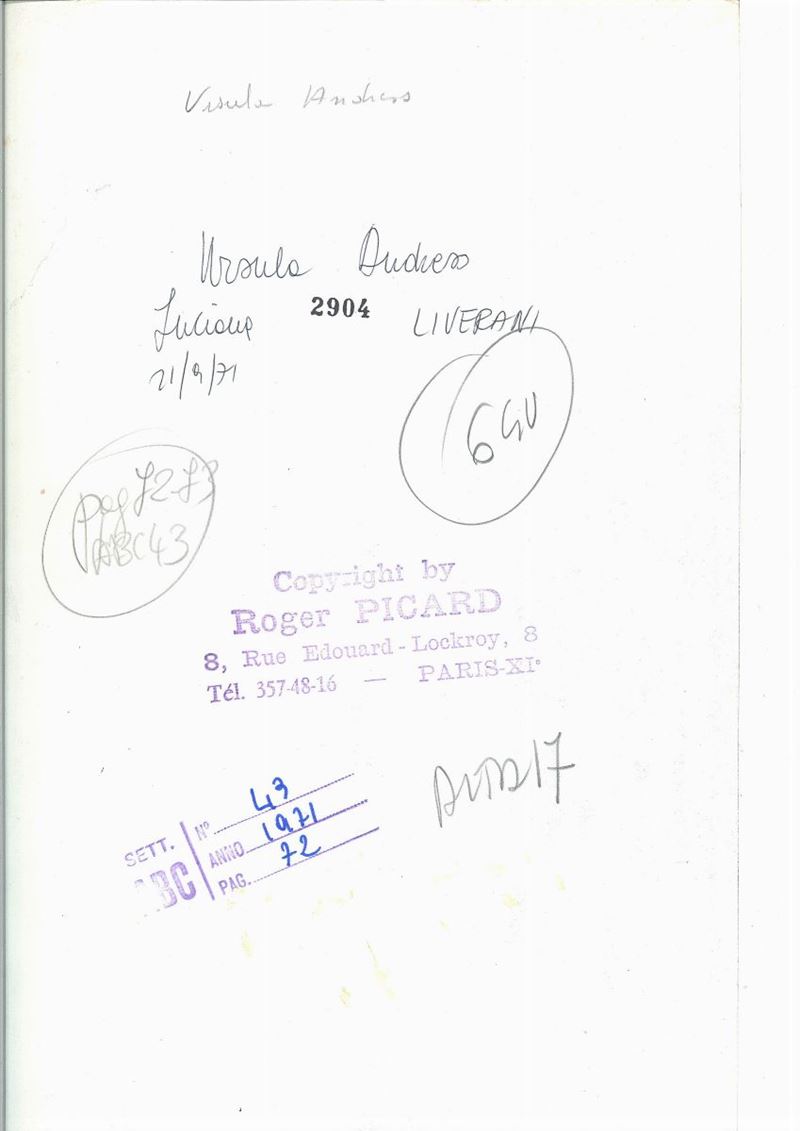 Ursula Andress
Ursula Andress
2904
Luciana LIVERANI
21/9/71
6
pag 72-73
ABC 43
Copyright by
Roger PICARD
8, Rue Edouard-Lockroy, 8
Tél. 357-48-16 — PARIS-XI°
SETT. ABC
N° 43
ANNO 1971
PAG. 72